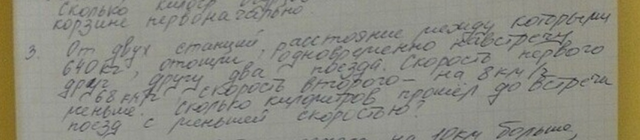 сколько
корзине первоначально
3. От двух станций, расстояние между которыми
640 кг, отошли одновременно навстречу
друг другу два поезда. Скорость первого
68 км/г скорость второго - на 8 км/г
меньше. Сколько километров прошёл до встречи
поезд с меньшей скоростью?
на 10 км больше,